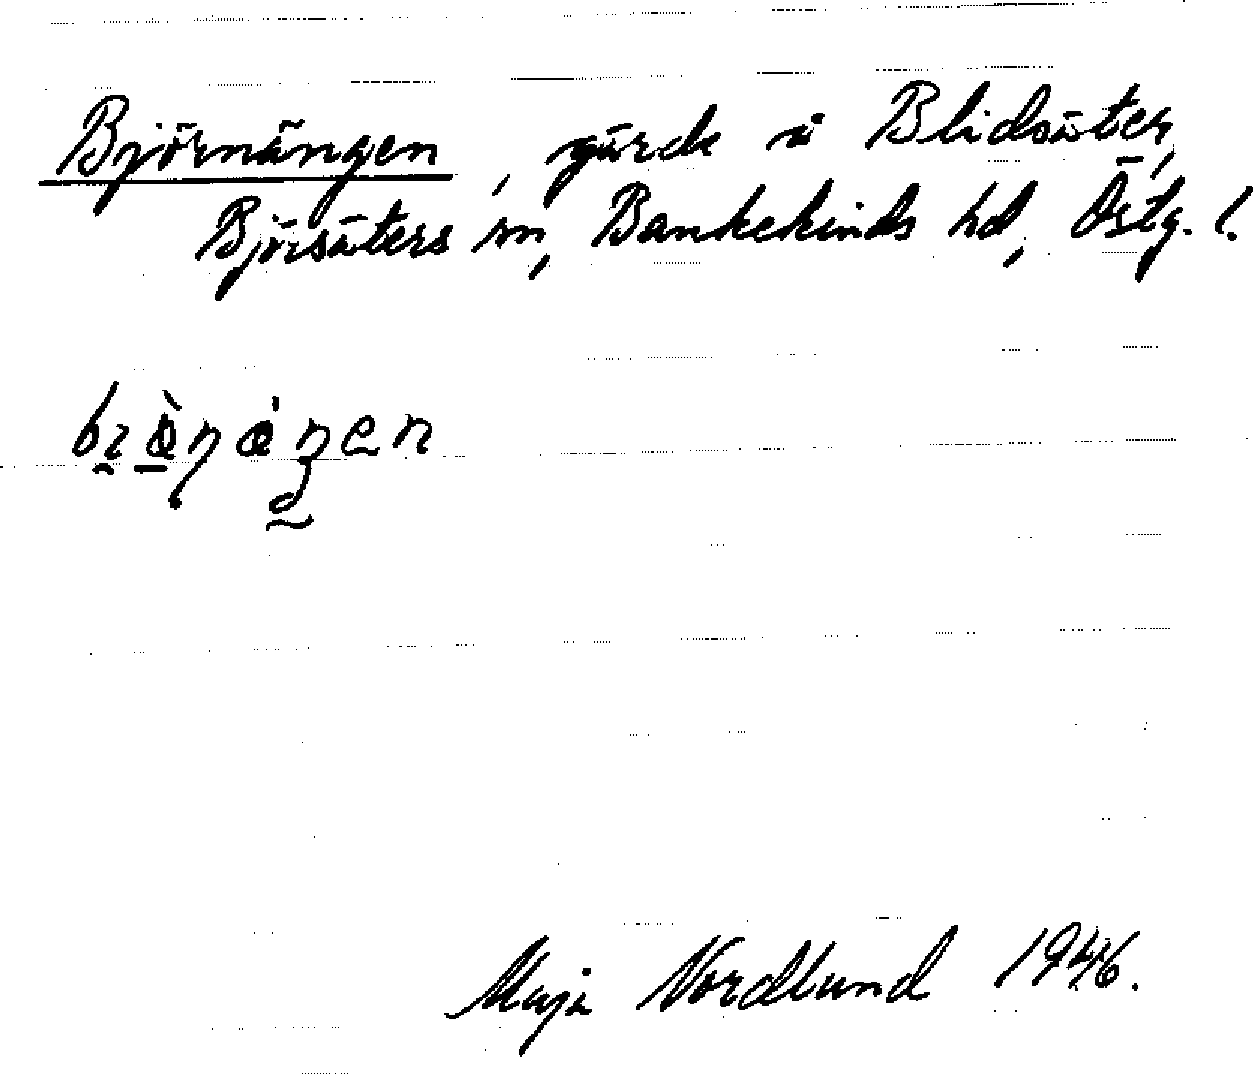 Björnängen, gärde å Blidsäter,
Björsäters sn, Bankekinds hd, Östg. l.
Maja Nordlund 1946.